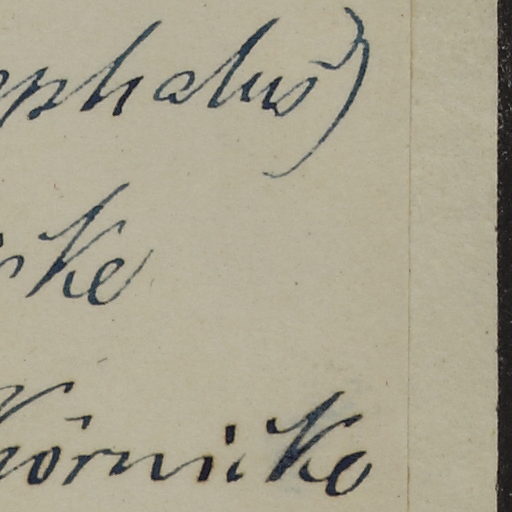 ephalus)
icke
Körnicke